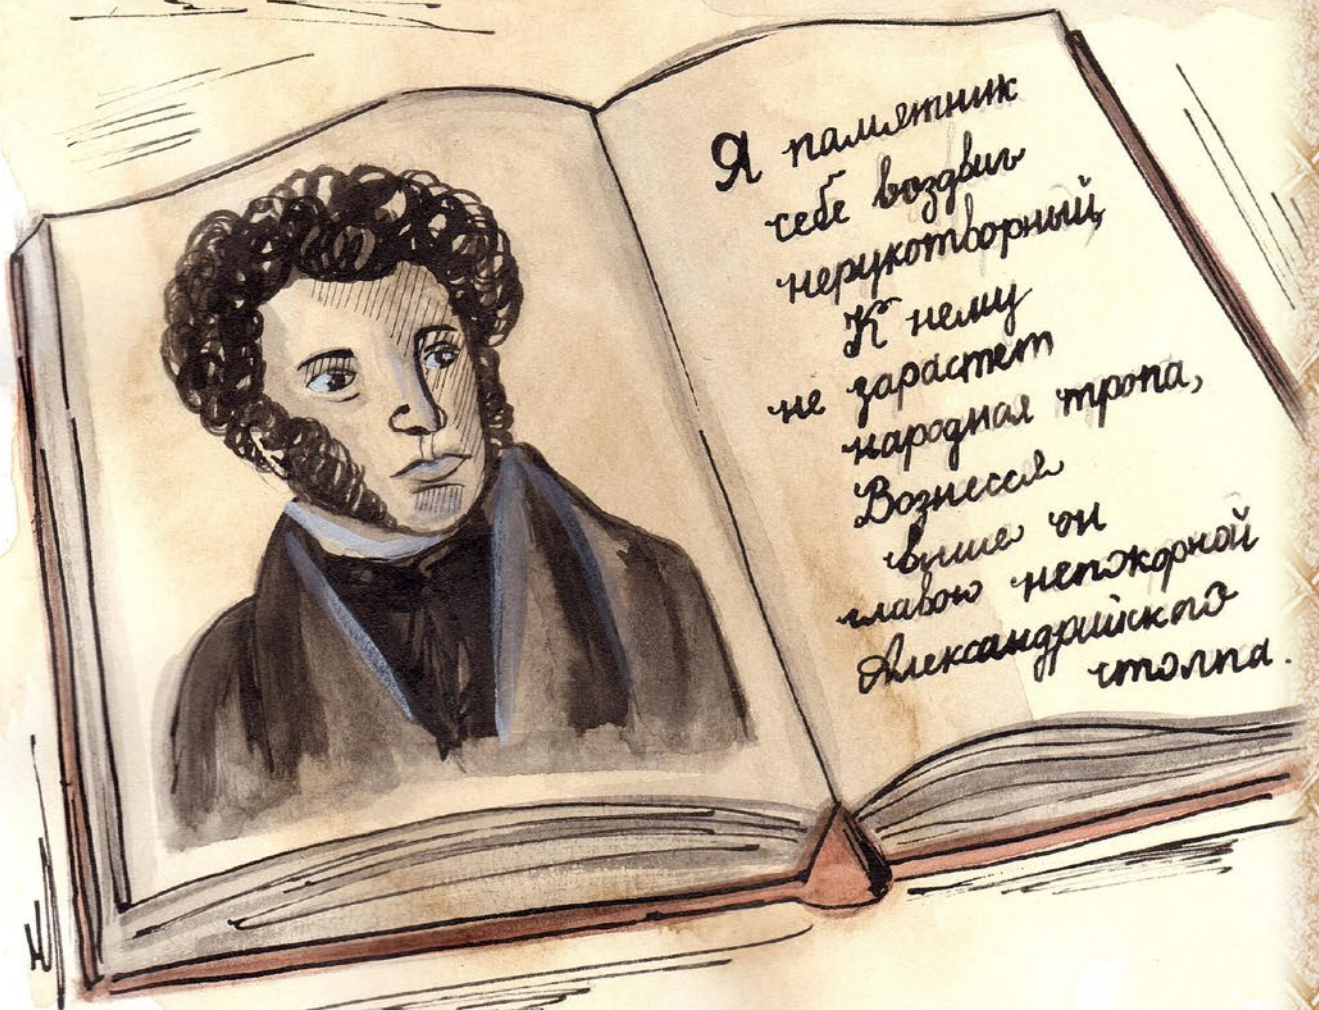 Я памятник
себе воздвиг
нерукотворный,
К нему
не зарастет
народная тропа,
Вознесся
выше он
главою непокорной
Александрийского
столпа.